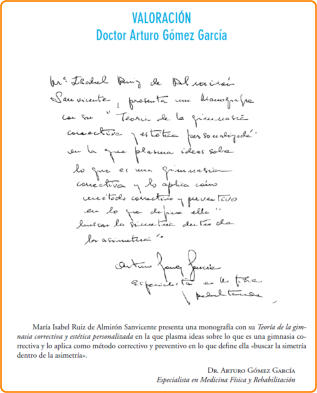 VALORACIÓN
Doctor Arturo Gómez García
Mª Isabel Ruiz de Almirón
Sanvicente, presenta una monografia
con su "Teoria de la gimnasia
correctiva y estética personalizada"
en la que plasma ideas sobre
lo que es una gimnasia
correctiva y lo aplica como
método correctivo y preventivo
en lo que define ella "
buscar la simetria dentro de
la asimetria".
Arturo Gomez Garcia
Especialista en M. Fisica
y Rehabilitación
María Isabel Ruiz de Almirón Sanvicente presenta una monografía con su Teoría de la gim-
nasia correctiva y estética personalizada en la que plasma ideas sobre lo que es una gimnasia co-
rrectiva y lo aplica como método correctivo y preventivo en lo que define ella «buscar la simetría
dentro de la asimetría».
DR. ARTURO GÓMEZ GARCÍA
Especialista en Medicina Física y Rehabilitación